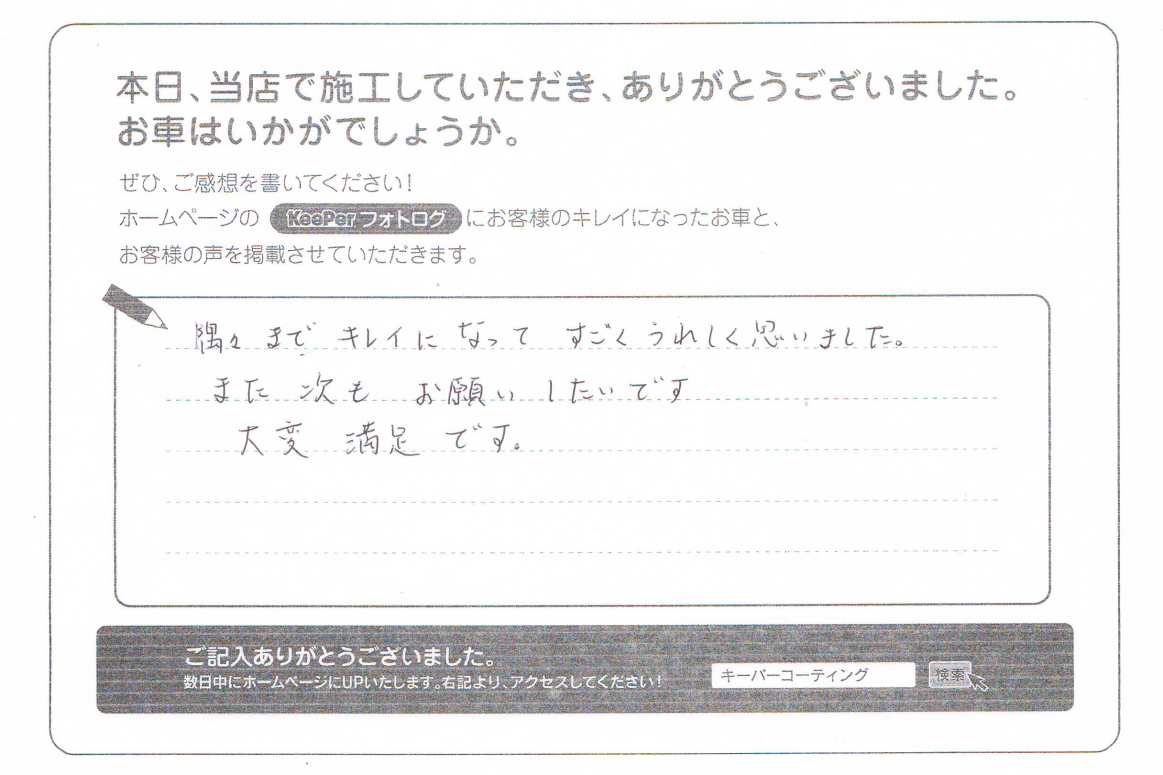 本日、当店で施工していただき、ありがとうございました。
お車はいかがでしょうか。
ぜひ、ご感想を書いてください!
ホームページの KeePer フォトログ にお客様のキレイになったお車と、
お客様の声を掲載させていただきます。
隅々まで キレイに なって すごく うれしく思いました。
また 次も お願い したいです
大変 満足 です。
ご記入ありがとうございました。
数日中にホームページにUPいたします。右記より、アクセスしてください!
キーパーコーティング 検索